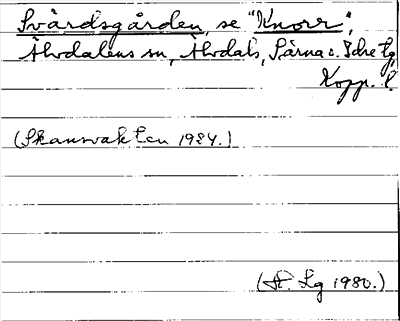 Svärdsgården, se "Knorr",
Älvdalens sn, Älvdals, Särna o. Idre tg,
Kopp. l.
(Skansvakten 1924.)
Lg 1980.)